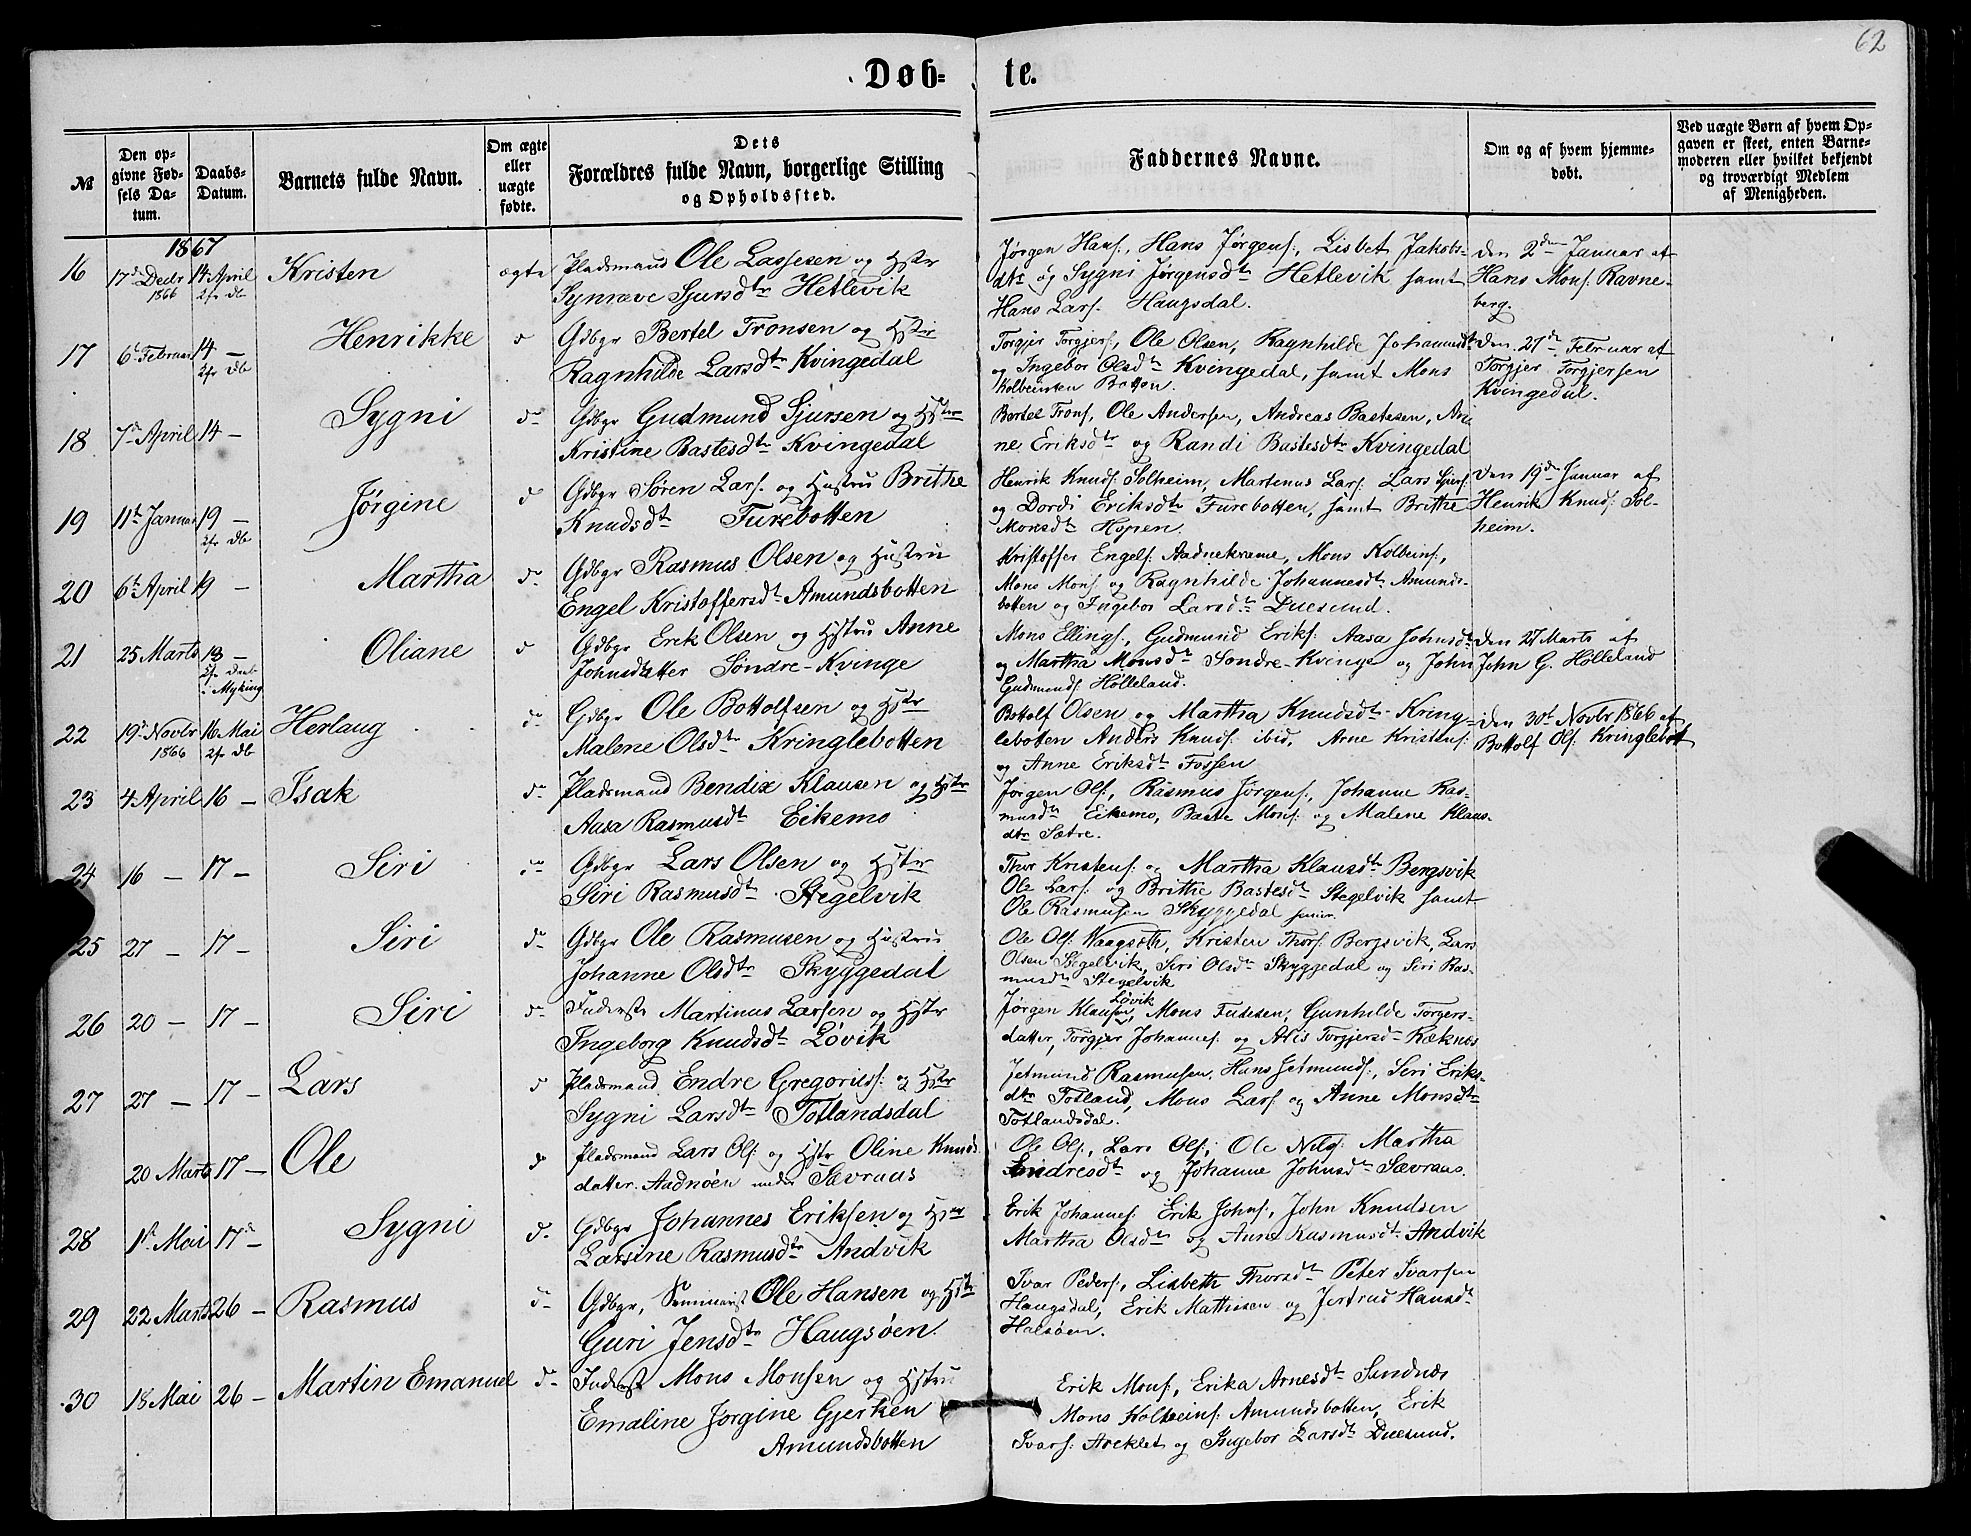 62
Døb-
te.
№
Den op-
givne Fød-
sels Da-
tum.
Daabs-
Datum.
Barnets fulde Navn.
Om ægte
eller
uægte
fødte.
Dets
Forældres fulde Navn, borgerlige Stilling
og Opholdssted.
Faddernes Navne.
Om og af hvem hjemme-
døbt.
Ved uægte Børn af hvem Op-
gaven er skeet, enten Barne-
moderen eller hvilket bekjendt
og troværdigt Medlem
af Menigheden.
1867
16
17d Decbr
1866
14 April
Kristen
ægte
Pladsmand Ole Lassesen og Hstr
Synneve Sjursdtr Hetlevik
Jørgen Hans., Hans Jørgens., Lisbet Jakobs-
dtr og Sygni Jørgensdtr Hetlevik samt
Hans Lars. Haugsdal.
den 2den Januar af
Hans Mons. Ravne-
berg.
17
6t Februar
14 —
Henrikke
Gdbgr Bertel Tronsen og Hstr
Ragnhilde Larsdtr Kvingedal
Torgjer Torgjers., Ole Olsen, Ragnhilde Johannesdtr
og Ingebor Olsdtr Kvingedal, samt Mons
Kolbeinsen Botten.
den 21de Februar af
Torgjer Torgjersen
Kvingedal.
18
7d April
14 —
Sygni
do
Gdbgr Gudmund Sjursen og Hstr
Kristine Bastesdtr Kvingedal
Bertel Trons., Ole Andersen, Andreas Bastesen, Ari
ne Eriksdtr og Randi Bastesdtr Kvingedal
19
11t Januar
19 —
Jørgine
do
Gdbgr Søren Lars. og Hustru Brithe
Knudsdtr Furebotten
Henrik Knuds. Solheim, Martinus Lars. Lars Sjurs.
og Dordi Eriksdtr Furebotten, samt Brithe
Monsdtr Hopen.
den 19de Januar af
Henrik Knuds. Sol-
heim.
20
6t April
19 —
Martha
do
Gdbgr Rasmus Olsen og Hustru
Engel Kristoffersdtr Amundsbotten
Kristoffer Engels. Aadnekvame, Mons Kolbeins.,
Mons Mons. og Ragnhilde Johannesdtr Amunds-
botten og Ingebor Larsdtr Duesund.
21
25 Marts
13 —
i Myking
Oliane
Gdbgr Erik Olsen og Hstru Anne
Johnsdatter Søndre-Kvinge
Mons Ellings., Gudmund Eriks. Aasa Johnsdtr
og Martha Monsdtr Søndre-Kvinge og John
Gudmunds. Hølleland.
den 27 Marts af
John G. Hølleland
22
19d Novbr
1866
16 Mai
Herlaug
do
Gdbgr Ole Bottolfsen og Hstr
Malene Olsdtr Kringlebotten
Bottolf Olsen og Martha Knudsdtr Kring-
lebotten Anders Knuds. ibid, Arne Kristens.
og Anne Eriksdtr Fossen
den 30t Novbr 1866 af
Bottolf Ols. Kringlebot
23
4 April
16 —
Isak
do
Pladsmand Bendix Klausen og Hstr
Aasa Rasmusdtr Eikemo
Jørgen Ols., Rasmus Jørgens., Johanne Ras-
musdtr Eikemo, Baste Mons. og Malene Klaus-
dtr Sætre.
24
16 —
17 —
Siri
do
Gdbgr Lars Olsen og Hstr
Siri Rasmusdtr Stegelvik
Thor Kristens. og Martha Klausdtr Bergsvik
Ole Lars. og Brithe Bastesdtr Stegelvik samt
Ole Rasmusen Skyggedal
25
27 —
17 —
Siri
do
Gdbgr Ole Rasmusen og Hustru
Johanne Olsdtr Skyggedal
Ole Ols. Vaagseth, Kristen Thors. Bergsvik, Lars
Olsen Stegelvik, Siri Olsdtr Skyggedal og Siri Ras-
musdtr Stegelvik
26
20 —
17 —
Siri
do
Inderst Martinus Larsen og Hstr
Ingeborg Knudsdtr Løvik
Løvik
Jørgen Klausen, Mons Fusesen, Gunhilde Torgers-
datter, Torgjer Johannes. og Alis Torgjersd Røknes
27
27 —
17 —
Lars
Pladsmand Endre Gregorius. og Hstr
Sygni Larsdtr Totlandsdal
Jetmund Rasmusen, Hans Jetmunds., Siri Eriks-
dtr Totland, Mons Lars. og Anne Monsdtr
Totlandsdal.
20 Marts
17 —
Ole
do
Pladsmand Lars Ols. og Hstr Oline Knuds
datter Aadnøen under Sævraas
Ole Ols., Lars Ols., Ole Nils. Martha
Endresdtr og Johanne Johnsdtr Sævraas.
28
1st Mai
17d —
Sygni
do
Gdbgr Johannes Eriksen og Hstr
Larsine Rasmusdtr Andvik
Erik Johannes. Erik Johns., John Knudsen
Martha Olsdtr og Anne Rasmusdtr Andvik
29
22 Marts
26 —
Rasmus
do
Gdbgr, Seminarist Ole Hansen og Hstr
Guri Jensdtr Haugsøen.
Ivar Peders., Lisbeth Thorsdtr Peter Ivarsen
Haugsdal, Erik Mathisen og Jertrud Hansdtr
Halsøen.
30
18 Mai
26 —
Martin Emanuel
do
Inderst Mons Monsen og Hstru
Emaline Jørgine Gjerken
Amundsbotten
Erik Mons., Erika Arnesdtr Sandnæs
Mons Kolbeins. Amundsbotten, Erik
Ivars. Areklet og Ingebor Larsdtr Duesund.